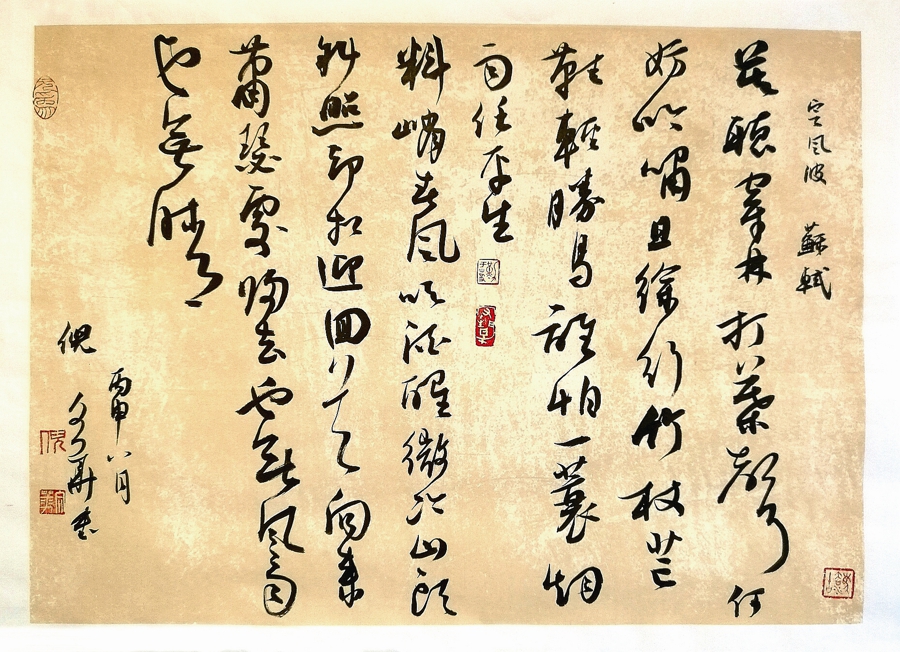 定風波 蘇軾
莫聽穿林打葉聲何
妨吟嘯且徐行竹杖芒
鞋輕勝馬誰怕一蓑烟
雨任平生
料峭春風吹酒醒微冷山頭
斜照却相迎回首向來
蕭瑟處歸去也無風雨
也無晴
丙申八月
倪
書